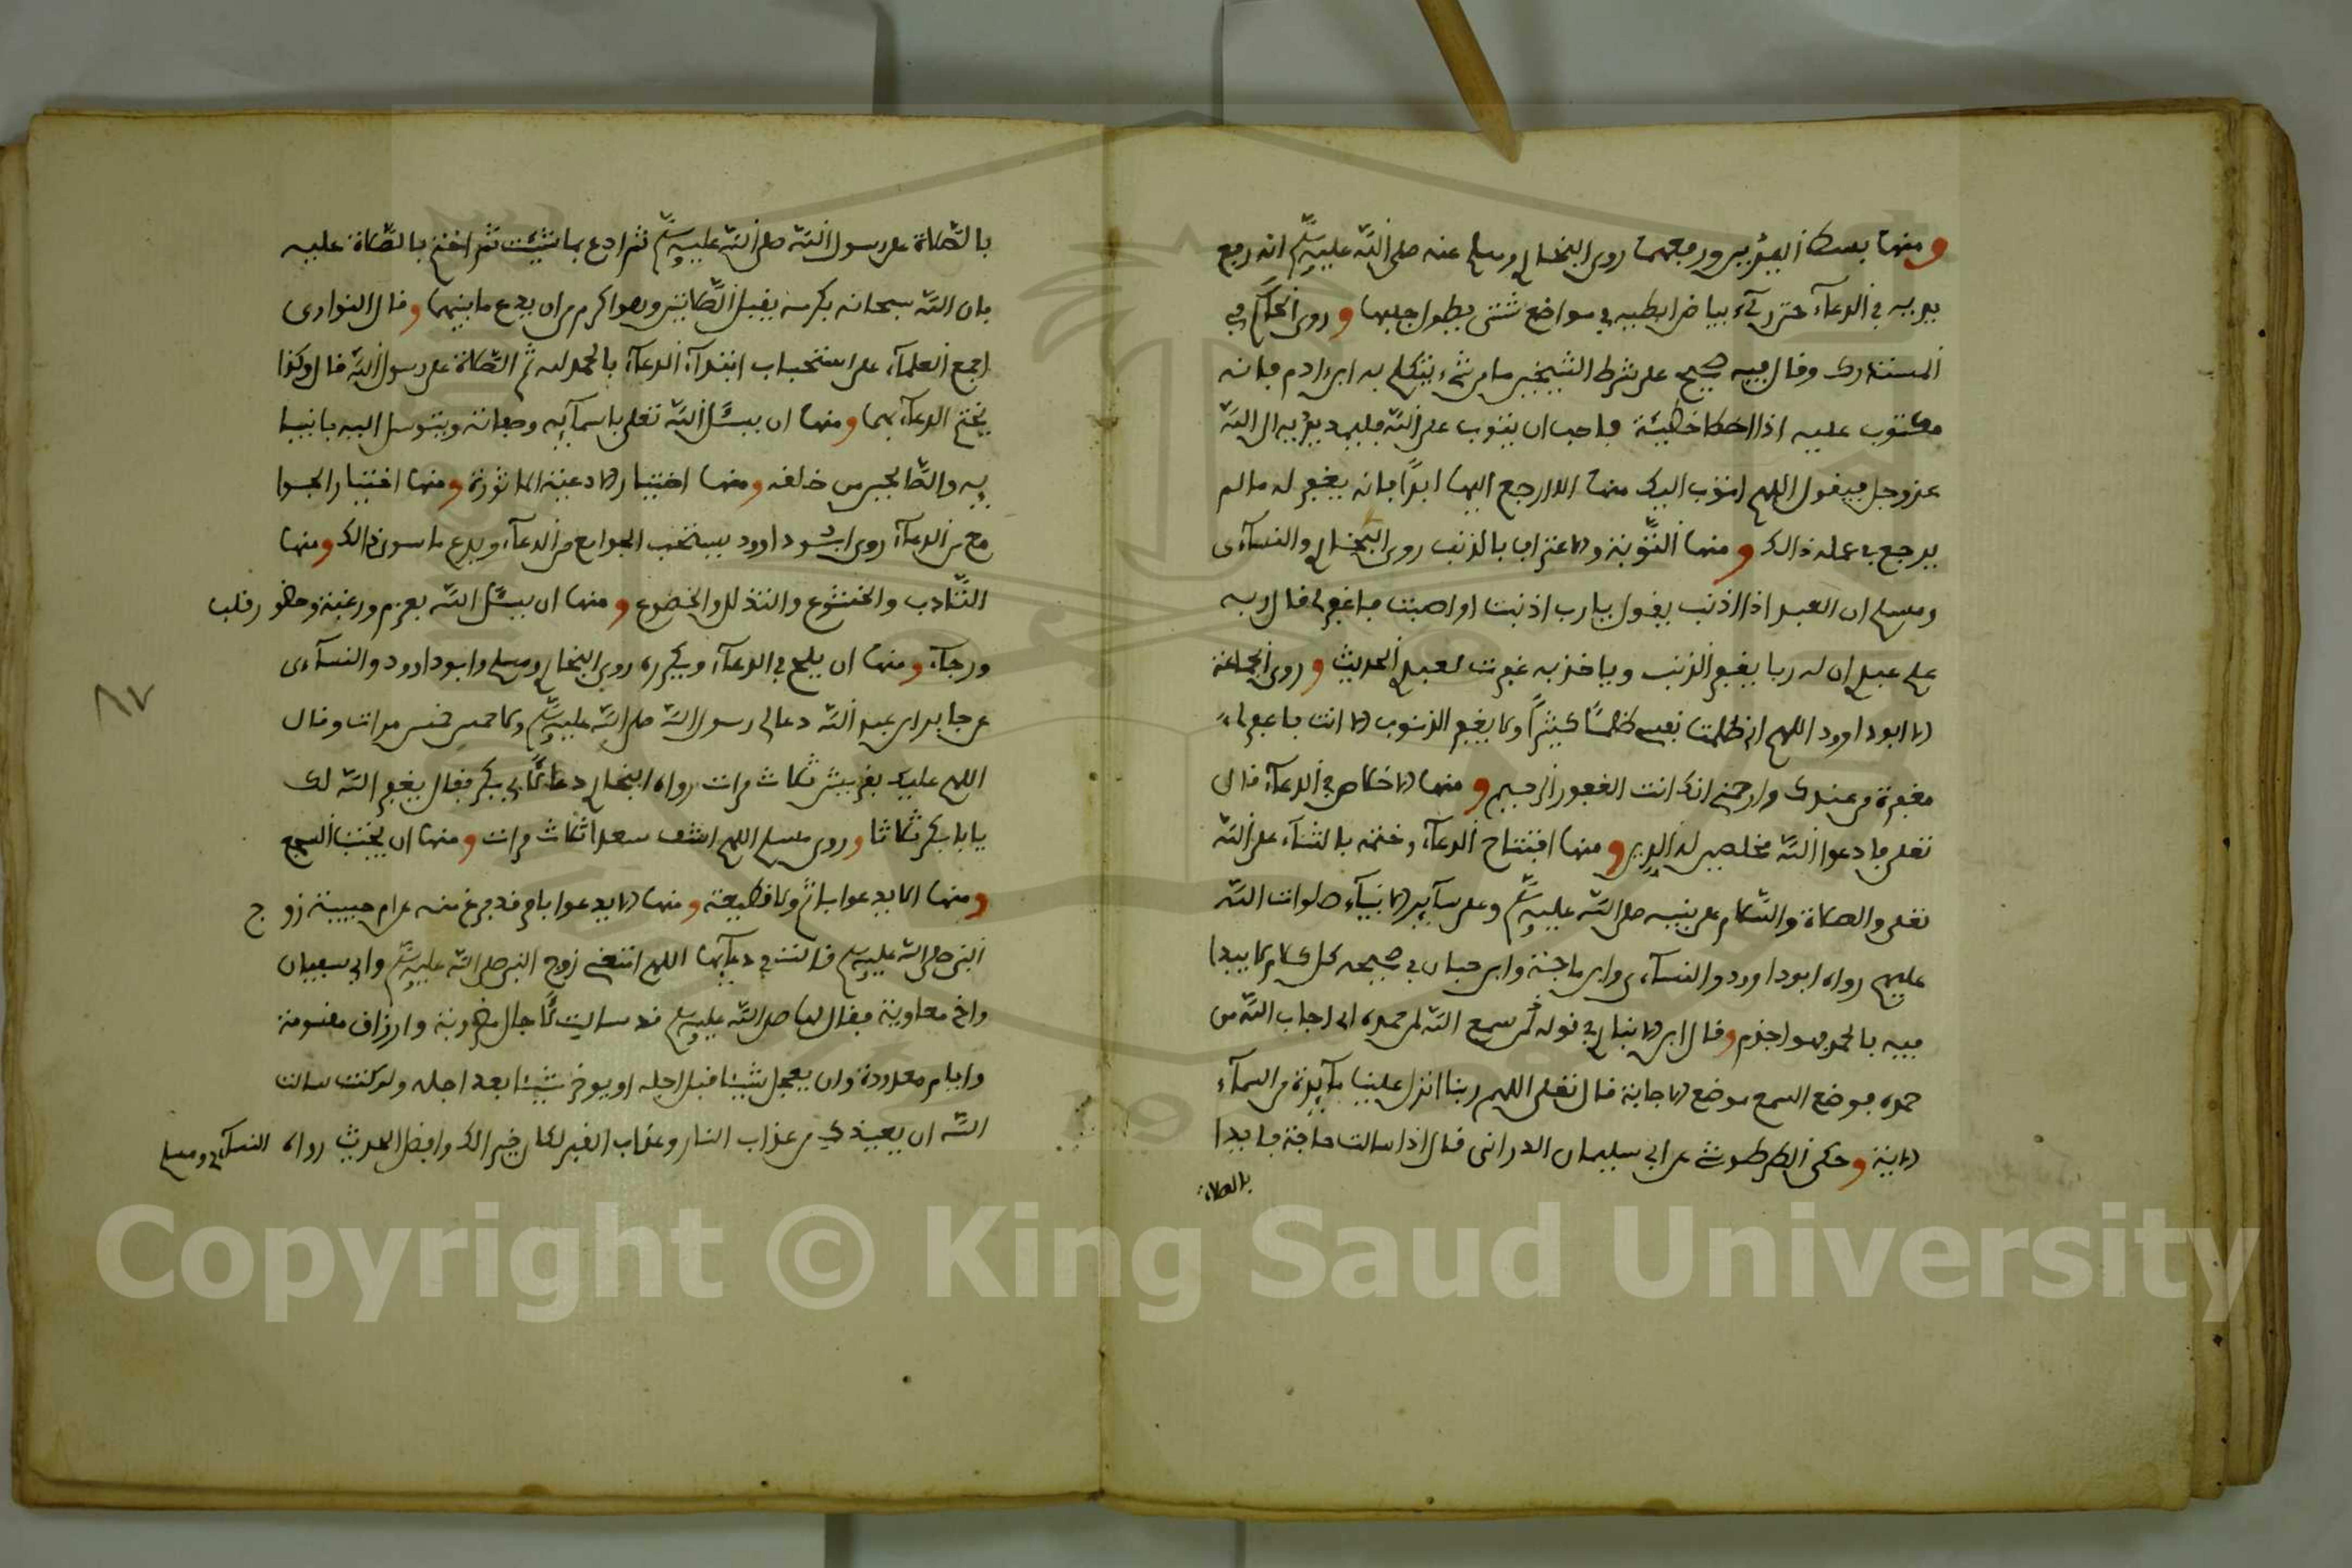 ومنها بسط اليدين ورفعهما روى البخاري ومسلم عنه صلى الله عليه وسلم انه رفع
يديه في الدعاء حتى رءى بياض ابطيه في مواضع شتى يطول جلبها وروى الحاكم في
المستدرك وقال فيه صحيح على شرط الشيخين ما من شيء يتكلم به ابن ادم فانه
مكتوب عليه اذا اخطا خطيئة فاحب ان يتوب على الله فليمد يديه الى الله
عز وجل فيقول اللهم اتوب اليك منها لا ارجع اليها ابدا فانه يغفر له ما لم
يرجع في عمله ذالك ومنها التوبة والاعتراف بالذنب روى البخاري والنساءى
ومسلم ان العبد اذا اذنب يقول يا رب اذنبت او اصبت فاغفر لي قال ربه
علم عبدي ان له ربا يغفر الذنب وياخذ به غفرت لعبدي الحديث وروى الجماعة
الا ابو داوود اللهم اني ظلمت نفسي ظلما كثيرا ولا يغفر الذنوب الا انت فاغفر لي
مغفرة من عندك وارحمني انك انت الغفور الرحيم ومنها الاخلاص في الدعاء قال
تعلى فادعوا الله مخلصين له الدين ومنها افتتاح الدعاء وختمه بالثناء على الله
تعلى والصلاة والسلام على نبيه صلى الله عليه وسلم وعلى سآير الانبياء صلوات الله
عليهم رواه ابو داوود والنساءى وابن ماجة وابن حبان في صحيحه كل كلام لا يبدا
فيه بالحمد فهو اجذم وقال ابن الانباري في قولهم سمع الله لمن حمده اي اجاب الله من
حمده فوضع السمع موضع الاجابة قال تعلى اللهم ربنا انزل علينا مآيدة من السمآء
الاية وحكى الطرطوشي عن ابي سليمان الدراني قال اذا سالت حاجة فابدا
بالصلاة
بالصلاة على رسول الله صلى الله عليه وسلم ثم ادع بما شئت ثم اختم بالصلاة عليه
فان الله سبحانه بكرمه يقبل الصلاتين وهو اكرم من ان يدع ما بينهما وقال النواوى
اجمع العلمآء على استحباب ابتدآء الدعآء بالحمد لله ثم الصلاة على رسول الله قال وكذا
يختم الدعآء بهما ومنها ان يسئل الله تعلى باسمآيه وصفاته ويتوسل اليه بانبيا
يه والصالحين من خلقه ومنها اختيار الادعية الماثورة ومنها اختيار الجوا
مع من الدعآء روى ابو داوود يستحب الجوامع من الدعآء ويدع ما سوى ذالك ومنها
التادب والخشوع والتذلل والخضوع ومنها ان يسئل الله بعزم ورغبة وحضور قلب
ورجآء ومنها ان يلح في الدعآء ويكرره روى البخاري ومسلم وابو داوود والنسآءى
عن جابر ابن عبد الله دعا لي رسول الله صلى الله عليه وسلم ولاحمس خمس مرات وقال
اللهم عليك بقريش ثلاث مرات رواه البخاري دعا لابي بكر فقال يغفر الله لك
يا ابا بكر ثلاثا وروى مسلم اللهم اشف سعدا ثلاث مرات ومنها ان يجتنب السجع
ومنها الا يدعوا باثم ولا قطيعة ومنها الا يدعوا بامر قد فرغ منه عن ام حبيبة زوج
النبي صلى الله عليه وسلم قالت في دعآيها اللهم امتعني زوج النبي صلى الله عليه وسلم وابي سفيان
واخي معاوية فقال لها صلى الله عليه وسلم قد سالت لاجال مضروبة وارزاق مقسومة
وايام معدودة ولن يعجل شيئا قبل اجله او يوخر شيئا بعد اجله ولو كنت سالت
الله ان يعيذك من عذاب النار وعذاب القبر لكان خير الك وافضل الحديث رواه النسآءي ومسلم
٨٧
Copyright © King Saud University